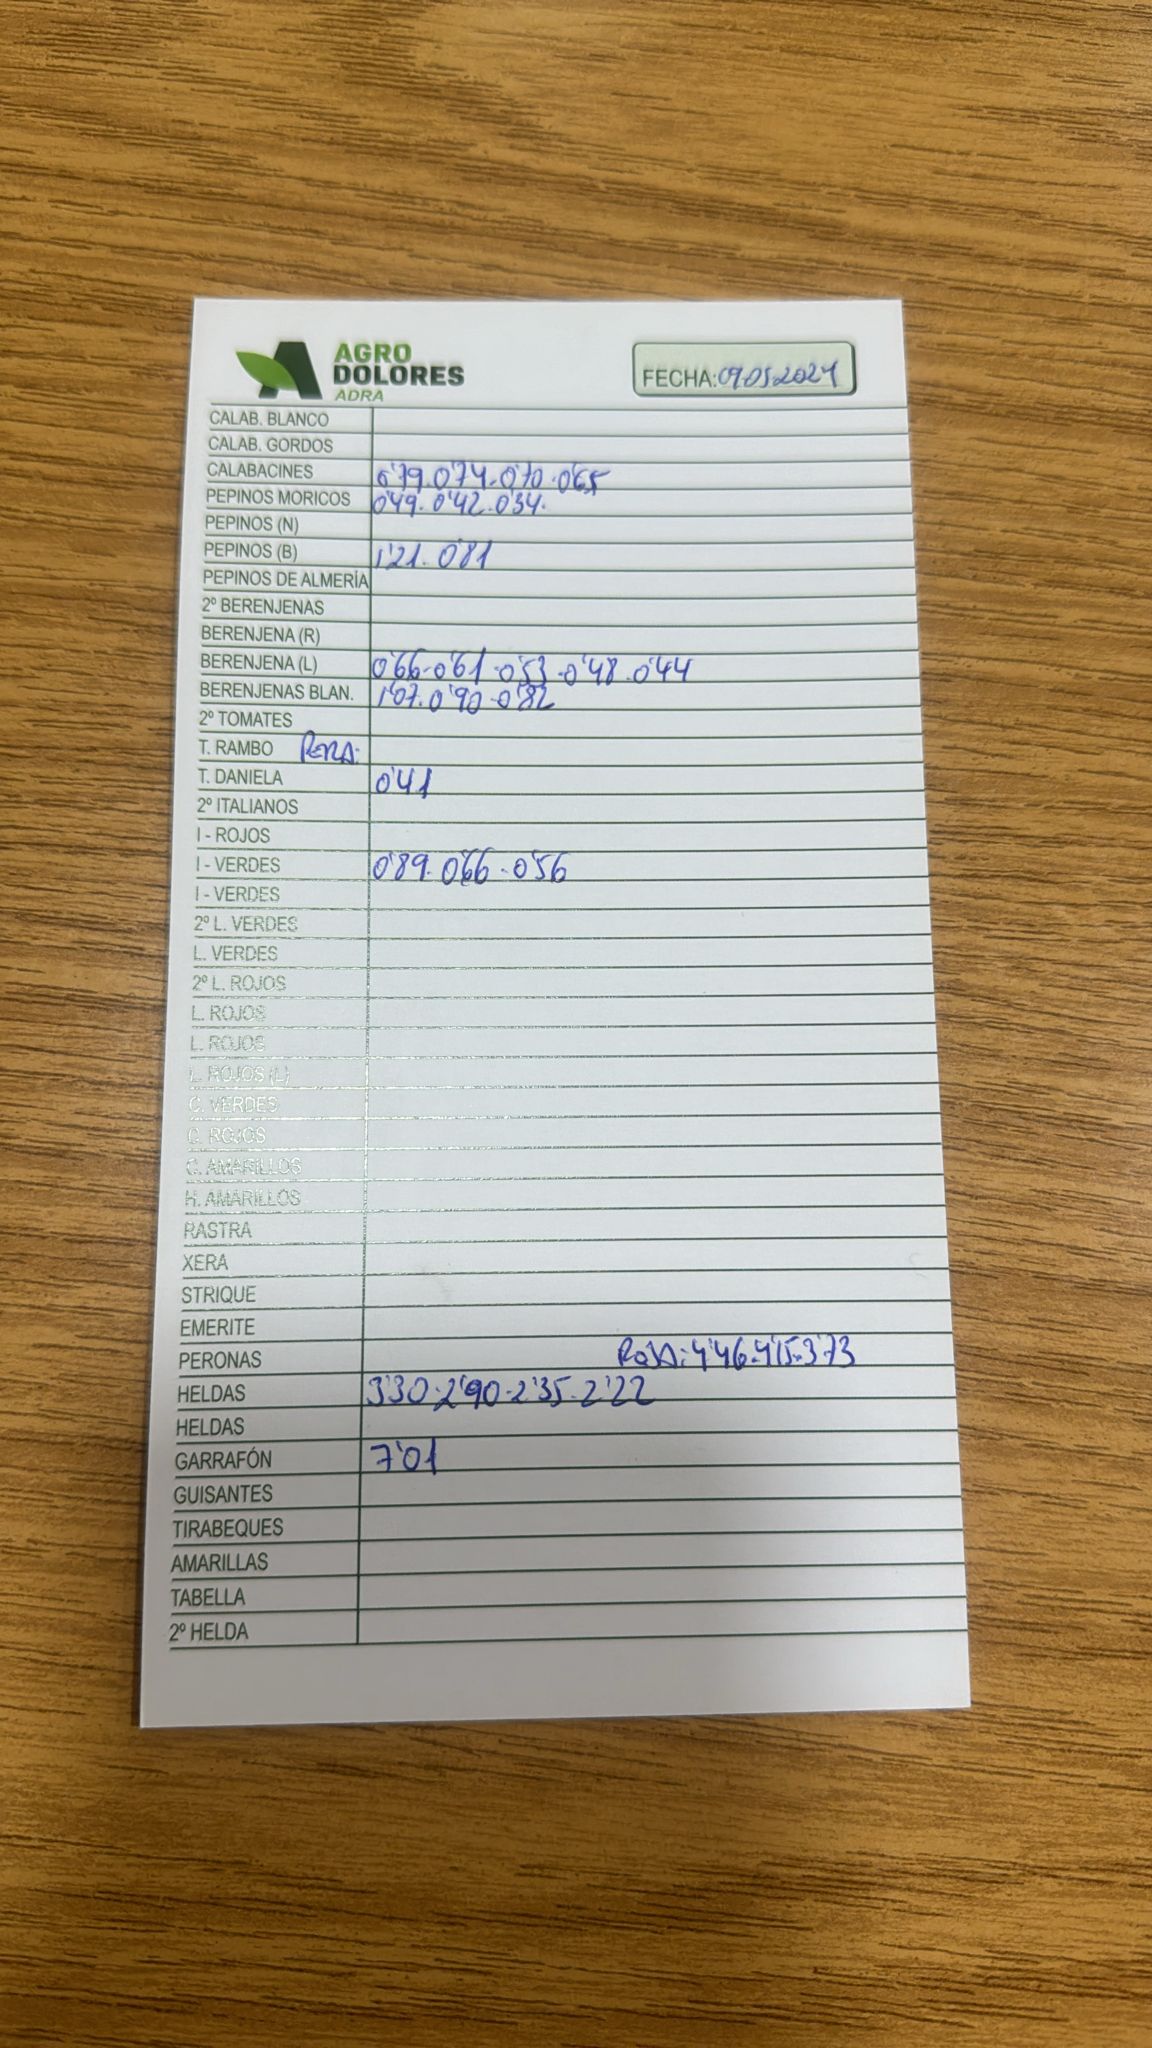 AGRO
DOLORES
ADRA
FECHA: 09.05.2024
CALAB. BLANCO
CALAB. GORDOS
CALABACINES 0'79.0'74.0'70.0'65
PEPINOS MORICOS 0'49.0'42.0'34.
PEPINOS (N)
PEPINOS (B) 1'21.0'81
PEPINOS DE ALMERÍA
2º BERENJENAS
BERENJENA (R)
BERENJENA (L) 0'66.0'61.0'53.0'48.0'44
BERENJENAS BLAN. 1'07.0'90.0'82
2º TOMATES
T. RAMBO PERA:
T. DANIELA 0'41
2º ITALIANOS
I - ROJOS
I - VERDES 0'89.0'66.0'56
I - VERDES
2º L. VERDES
L. VERDES
2º L. ROJOS
L. ROJOS
L. ROJOS
L. ROJOS (L)
C. VERDES
C. ROJOS
C. AMARILLOS
H. AMARILLOS
RASTRA
XERA
STRIQUE
EMERITE
PERONAS ROJA: 4'46.4'15.3'73
HELDAS 3'30.2'90.2'35.2'22
HELDAS
GARRAFÓN 7'01
GUISANTES
TIRABEQUES
AMARILLAS
TABELLA
2º HELDA